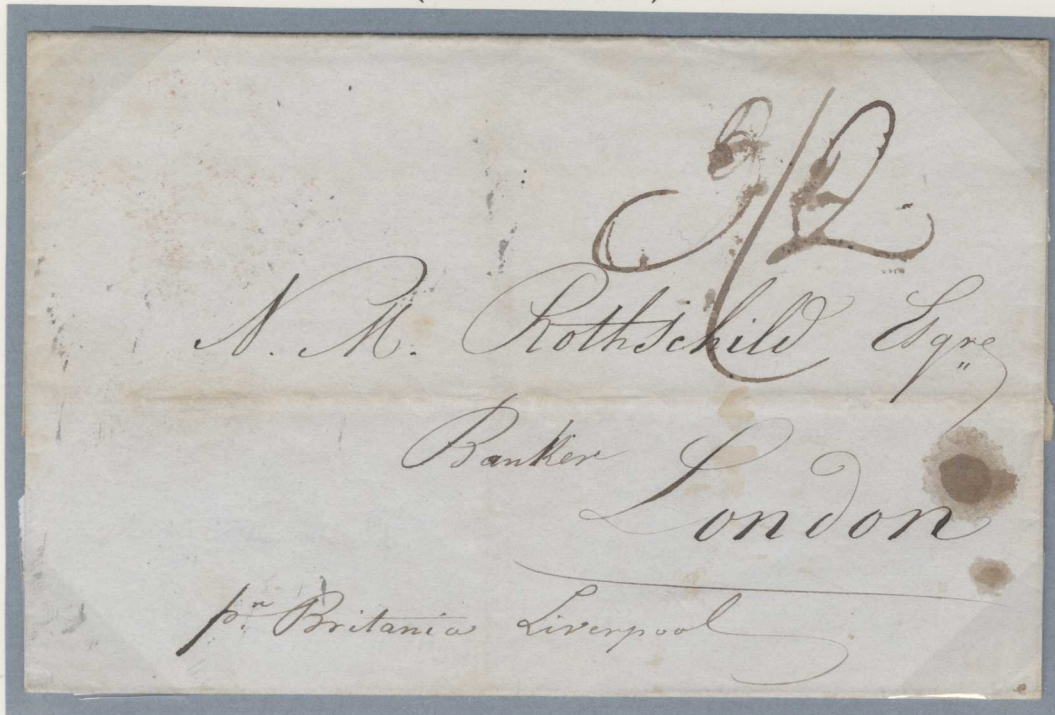 3/2
N. M. Rothschild Esqre
Banker
London
pr. Britania Liverpool